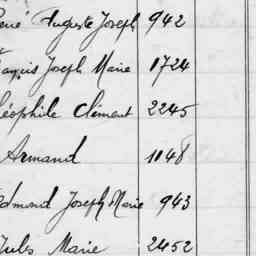 René Auguste Joseph 942
François Joseph Marie 1724
Théophile Clément 2245
Armand 1148
Edmond Joseph Marie 943
Jules Marie 2452